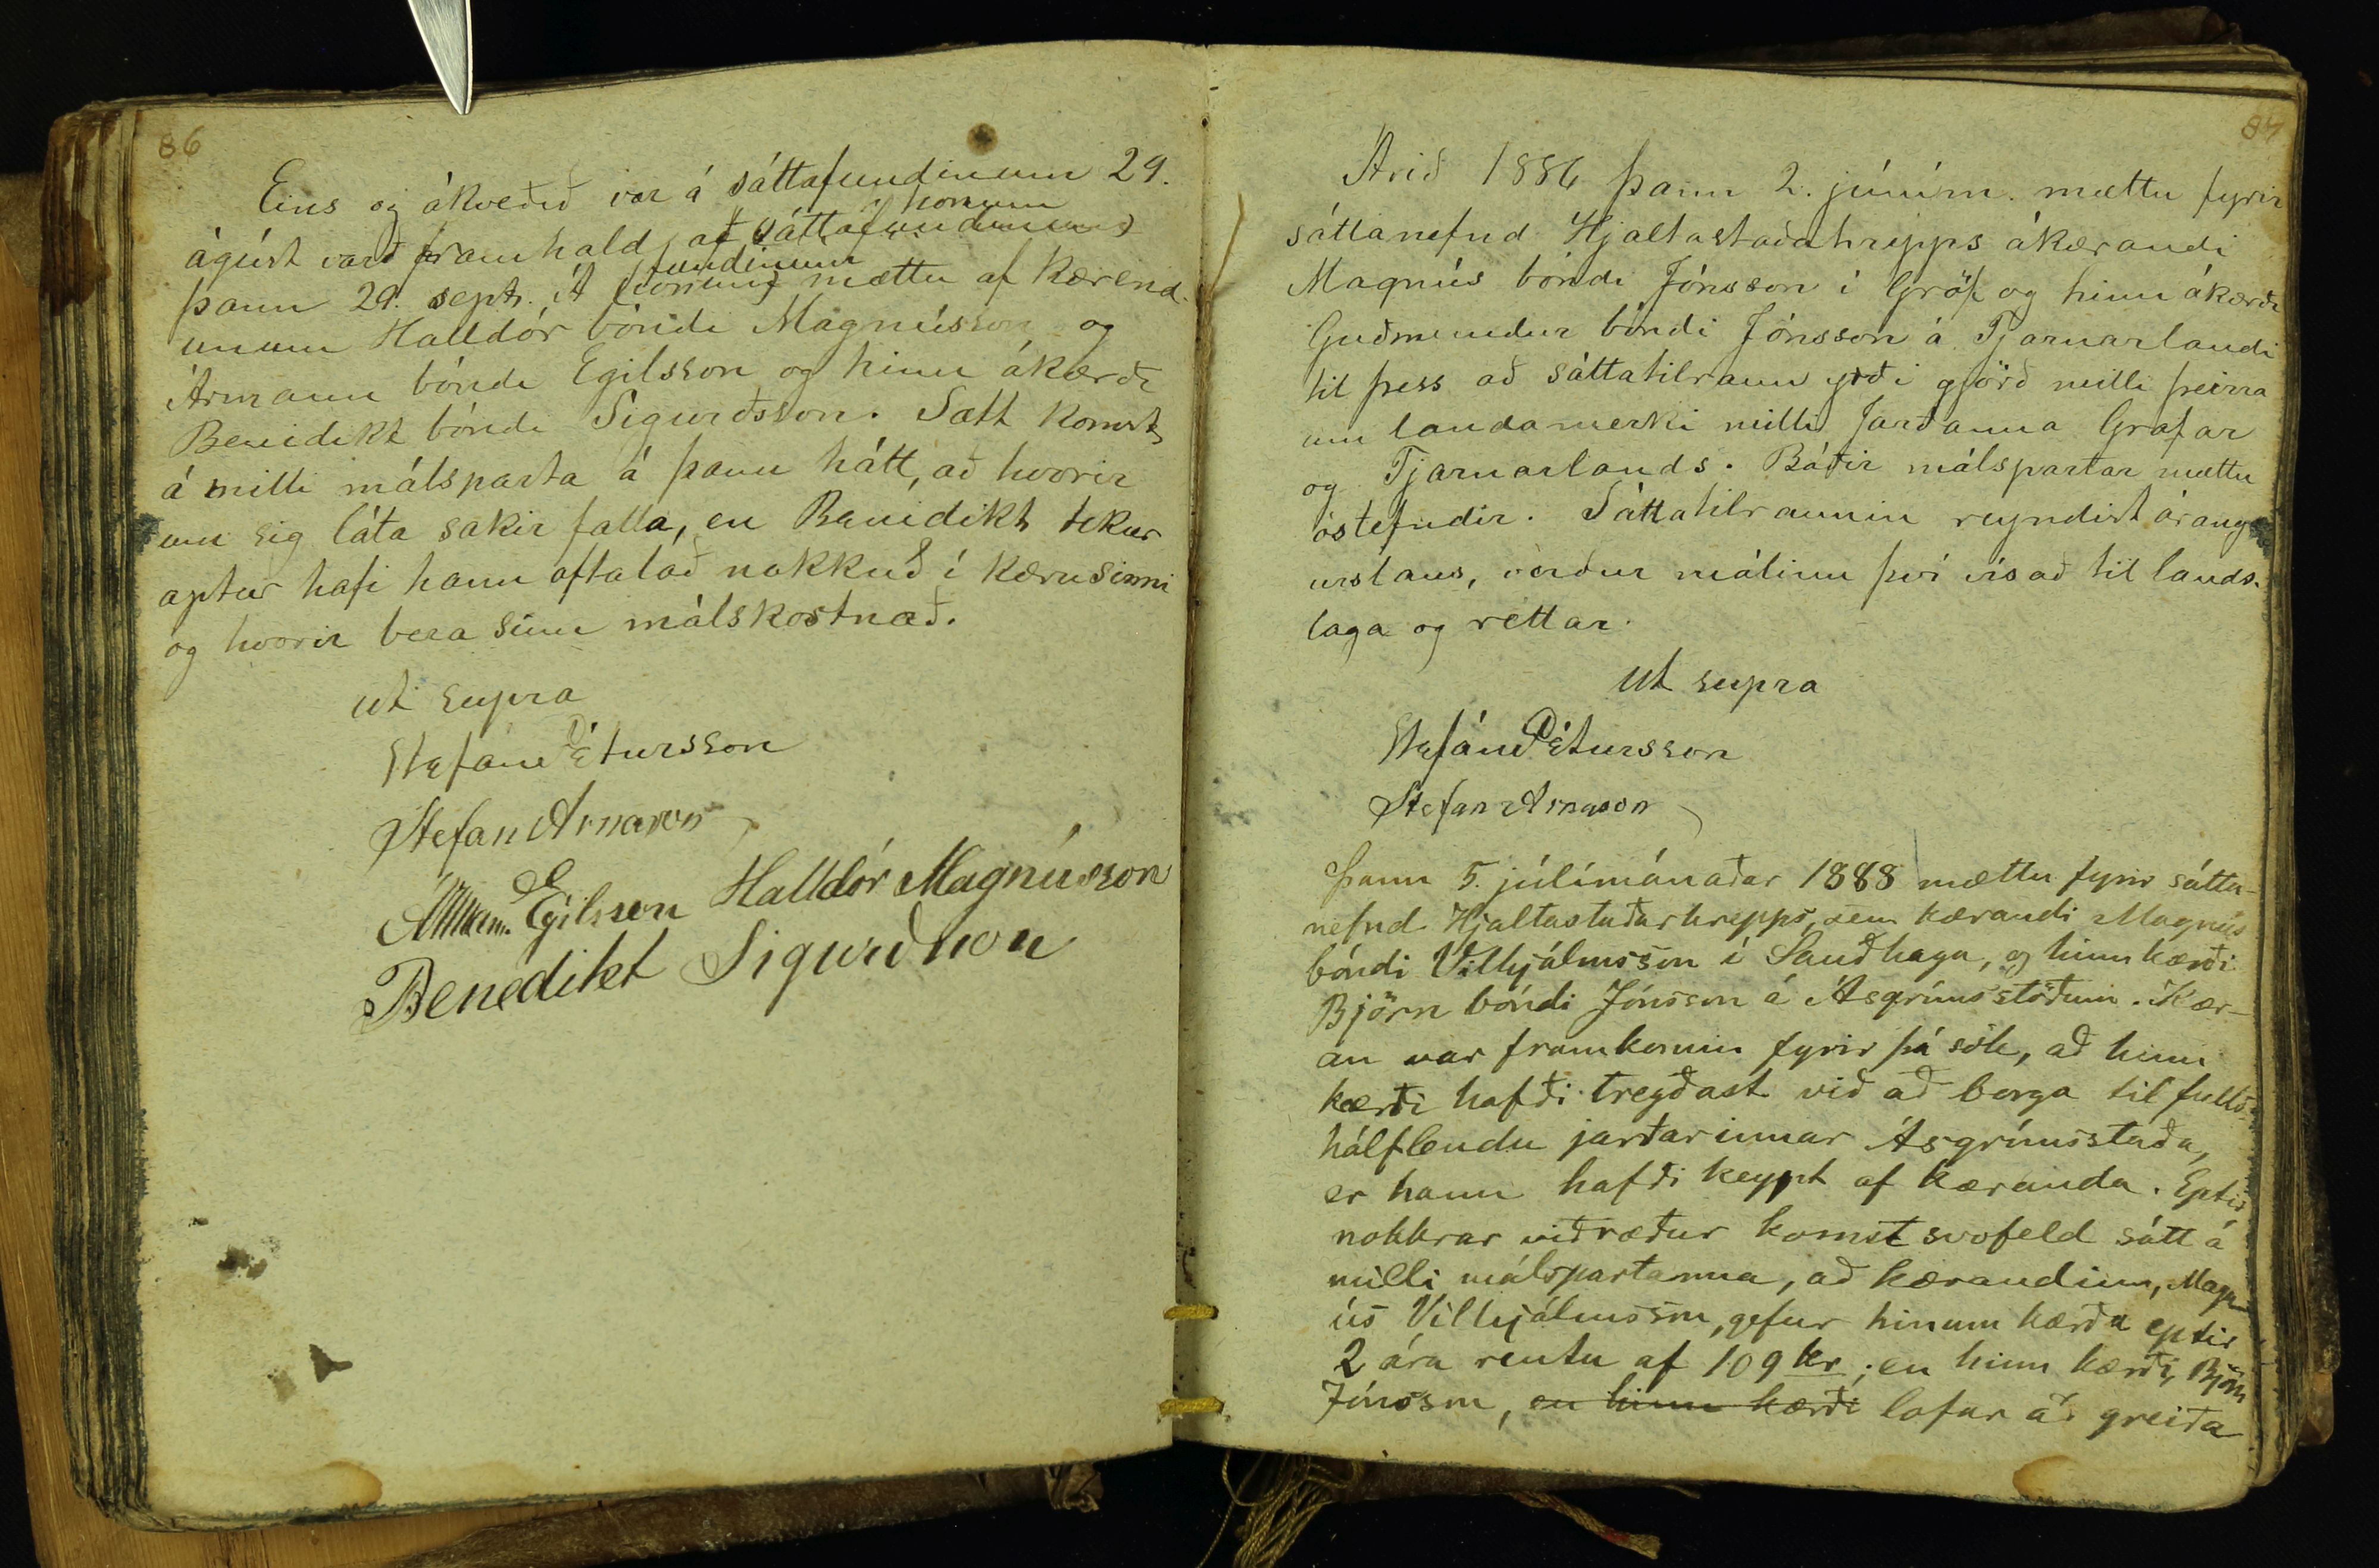 86
Eins og ákveðið var á sáttafundinum 29.
honum
ágúst varð framhald af (sáttafundinum)
fundinum
þann 29. sept. Á (honum) mættu af kærend-
unum Halldór bóndi Magnússon og
Ármann bóndi Egilsson og hinn ákærði
Benidikt bóndi Sigurðsson. Sætt komst
á milli málsparta á þann hátt, að hvorir
um sig láta sakir falla, en Benidikt tekur
aptur hafi hann oftalað nokkuð í kæru sinni
og hvorir bera sinn málskostnað.
ut supra
Stefán Pétursson
Stefan Arnason
Ármann Egilsson Halldór Magnússon
Benedikt Sigurðsson
87
Árið 1886 þann 2. júním. mættu fyrir
sáttanefnd Hjaltastaðahrepps ákærandi
Magnús bóndi Jónsson í Gröf og hinn ákærði
Guðmundur bóndi Jónsson á Tjarnarlandi
til þess að sáttatilraun yrði gjörð milli þeirra
um landamerki milli Jarðanna Grafar
og Tjarnarlands. Báðir málspartar mættu
óstefndir. Sáttatilraunin reyndist árang-
urslaus, verður málinu því vísað til lands-
laga og réttar.
Ut supra
Stefán Pétursson
Stefan Arnason
Þann 5. júlímánaðar 1888 mættu fyrir sátta-
nefnd Hjaltastaðarhrepps, sem kærandi Magnús
bóndi Vilhjálmsson í Sauðhaga, og hinn kærði
Björn bóndi Jónsson á Ásgrímsstöðum. Kær-
an var framkomin fyrir þá sök, að hinn
kærði hafði tregðast við að borga til fulls
hálflendu jarðarinnar Ásgrímsstaða,
er hann hafði keypt af kæranda. Eptir
nokkrar viðræður komst svofeld sátt á
milli málspartanna, að kærandinn, Magn-
ús Vilhjálmsson, gefur hinum kærða eptir
2 ára rentu af 109 kr.; en hinn kærði, Björn
Jónsson, en hinn kærði lofar að greiða